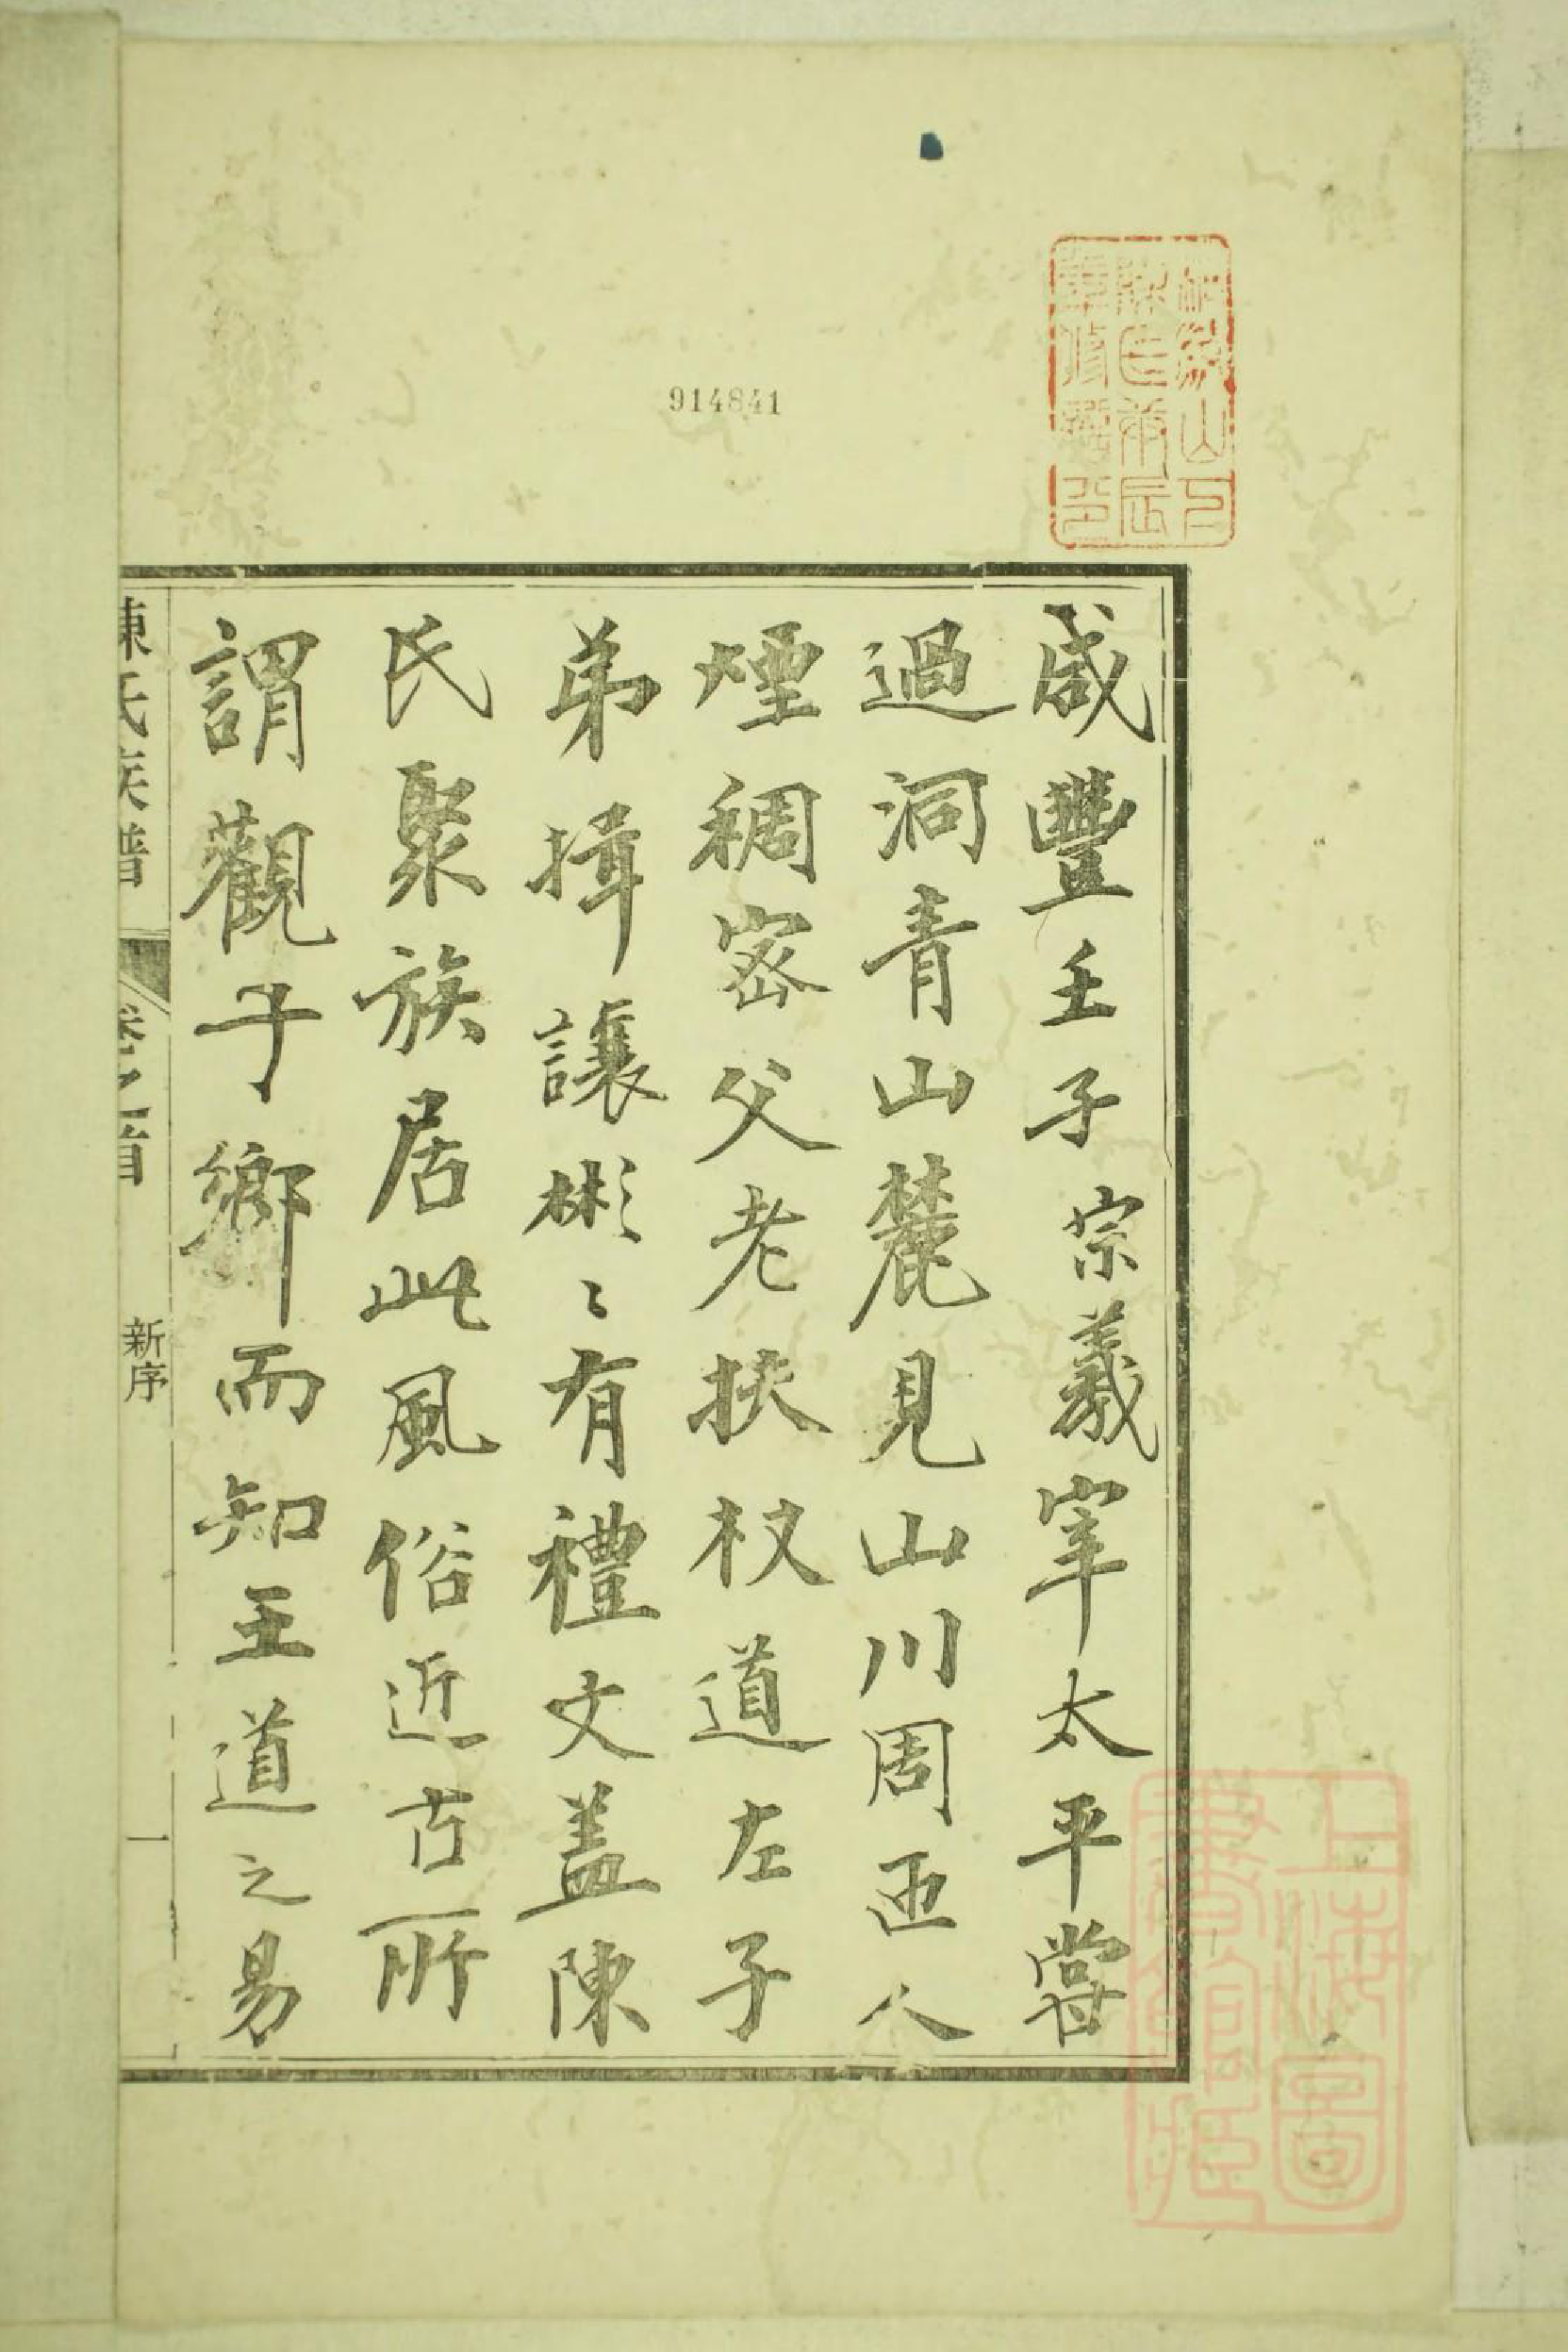 914841
咸豐壬子宗羲宰太平嘗
過洞青山麓見山川周迊人
煙稠宻父老扶杖道左子
弟揖讓彬〻有禮文蓋陳
氏聚族居此風俗近古所
謂觀于鄉而知王道之易
陳氏族譜 卷之首 新序 一
上海圖
書館藏